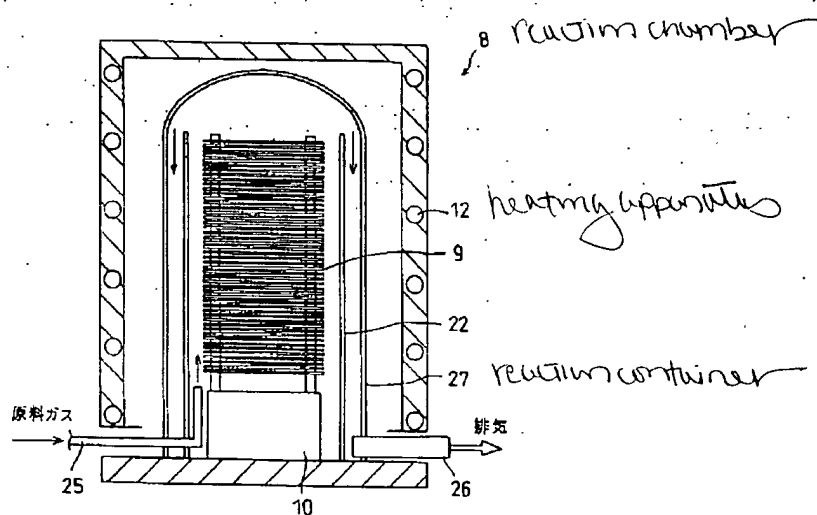 8 reaction chamber
12 heating apparatus
9
22
27 reaction container
原料ガス
排気
25
10
26